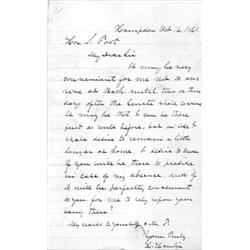 Hampden Oct. 16, 1861.
Hon. S. Foot
My Dear Sir
It may be very
convenient for me not to ar-
rive at Wash. until two or three
days after the Senate shall convene
It may be that I can be there
just as well before, but in
shall desire to remain a little
longer at home. I desire to know
if you will be there to preside
in case of my absence, and if
it will be perfectly convenient
to you, for me to rely upon your
being there?
My regards to yourself & Mrs. F.
Yours Truly
H. Hamlin